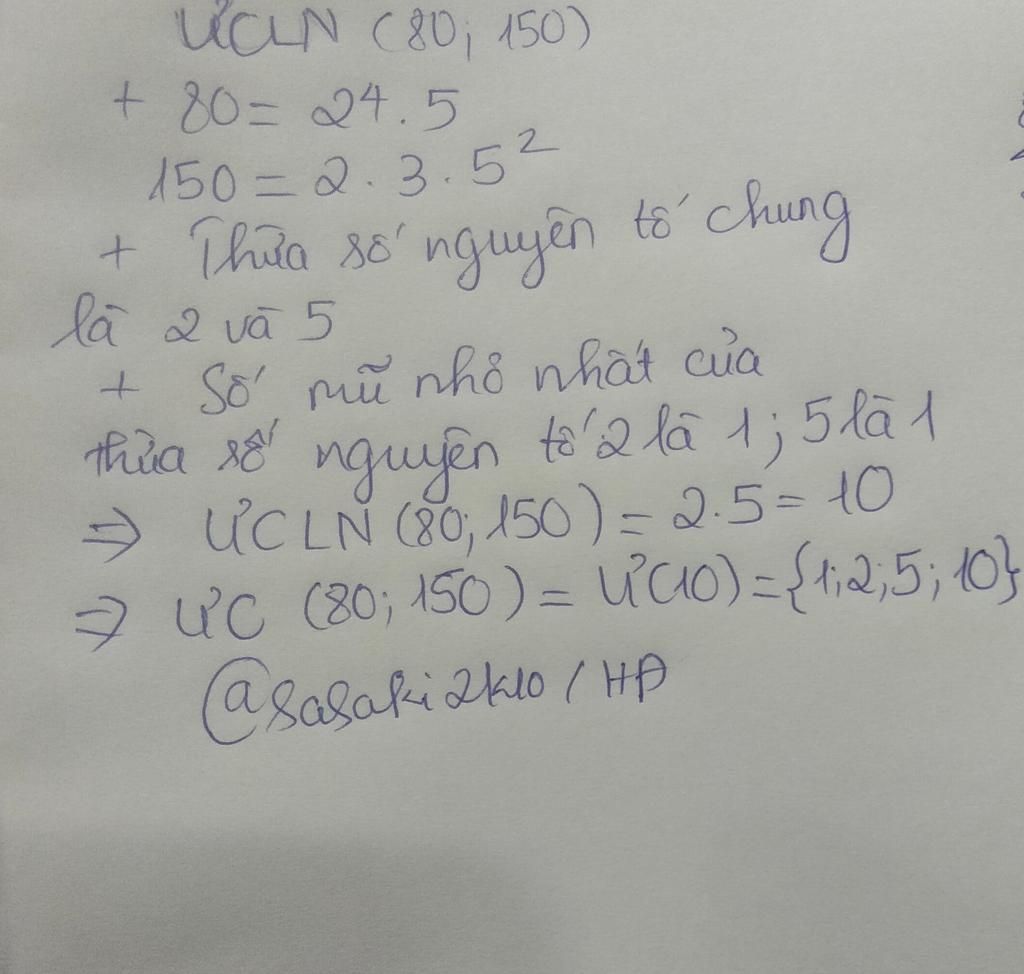 ƯCLN (80; 150)
+ 80 = 2⁴. 5
150 = 2. 3. 5²
+ Thừa số nguyên tố chung
là 2 và 5
+ Số mũ nhỏ nhất của
thừa số nguyên tố 2 là 1; 5 là 1
⇒ ƯCLN (80; 150) = 2.5 = 10
⇒ ƯC (80; 150) = Ư(10) = {1; 2; 5; 10}
@sasaki2k10 / HA